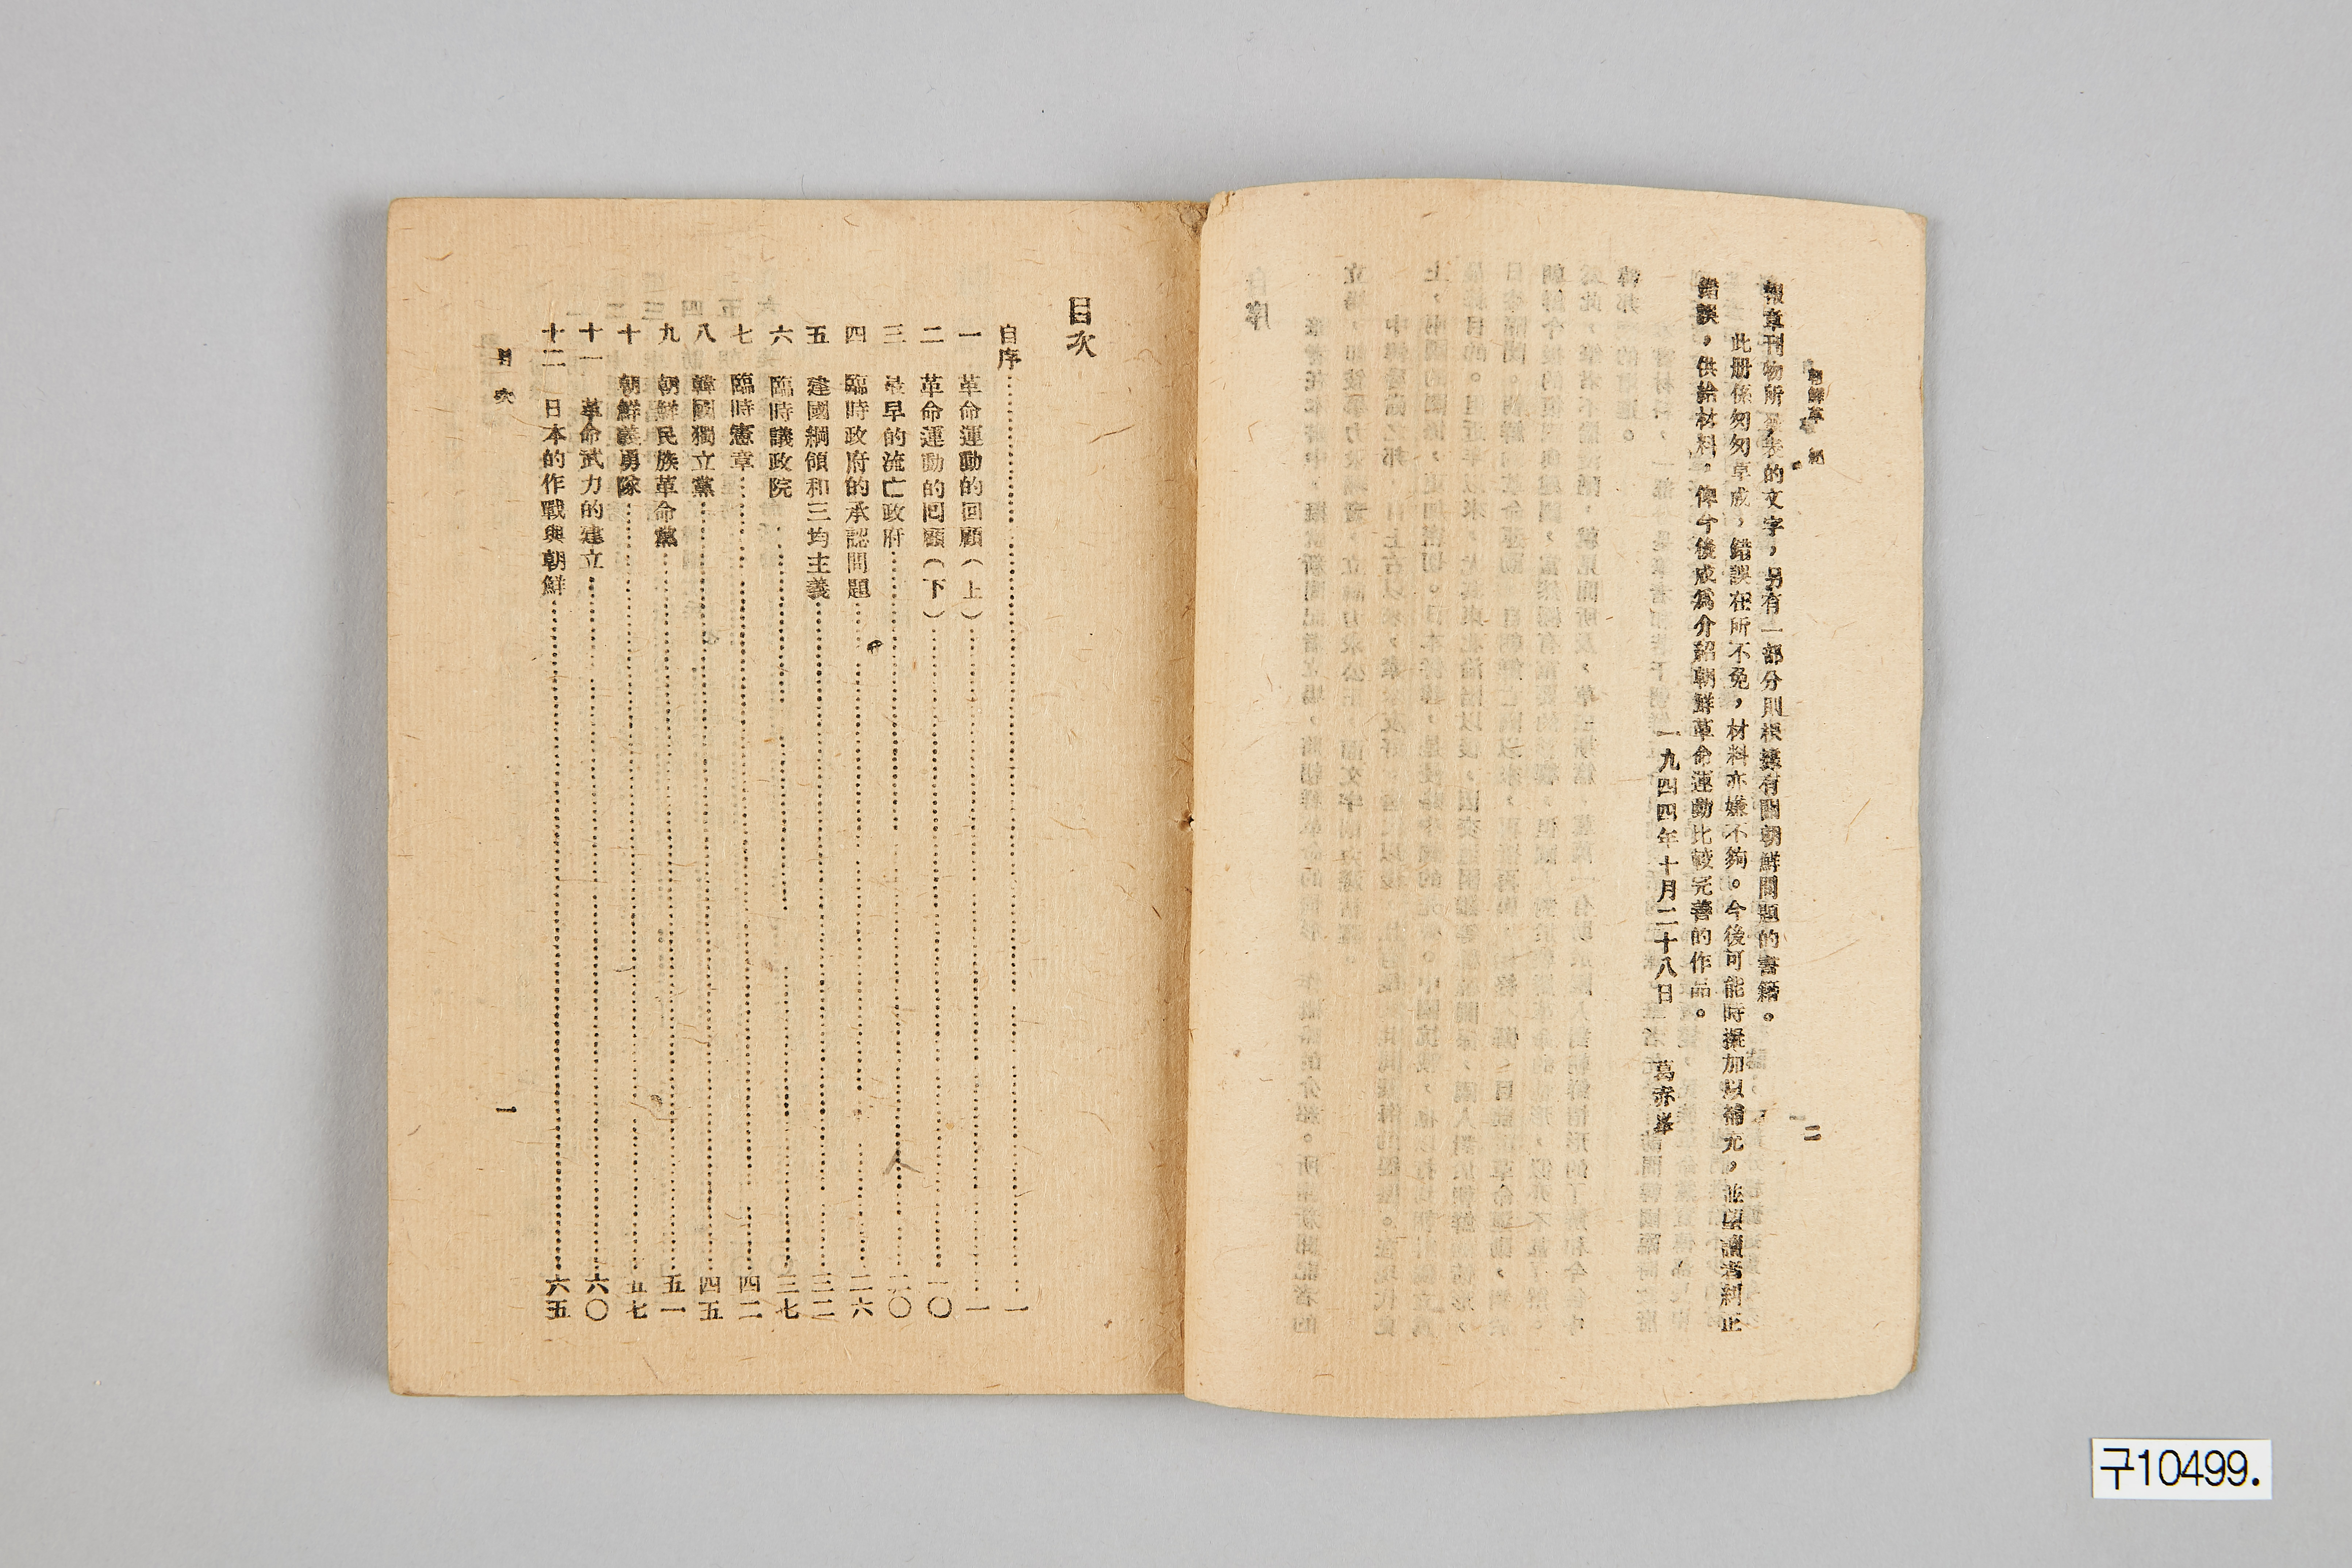 朝鮮革 紀
二
報章刊物所發表的文字，另有一部分則根據有關朝鮮問題的書籍。
此册係匆匆草成，錯誤在所不免，材料亦嫌不夠。今後可能時擬加以補充，並望讀者糾正
錯誤，供給材料，俾今後成爲介紹朝鮮革命運動比較完善的作品。
一九四四年十月二十八日 葛赤峯
目次
自序……一
一 革命運動的回顧（上）……一
二 革命運動的回顧（下）……一〇
三 最早的流亡政府……二〇
四 臨時政府的承認問題……二六
五 建國綱領和三均主義……三二
六 臨時議政院……三七
七 臨時憲章……四二
八 韓國獨立黨……四五
九 朝鮮民族革命黨……五一
十 朝鮮義勇隊……五七
十一 革命武力的建立……六〇
十二 日本的作戰與朝鮮……六五
目次
一
구10499.